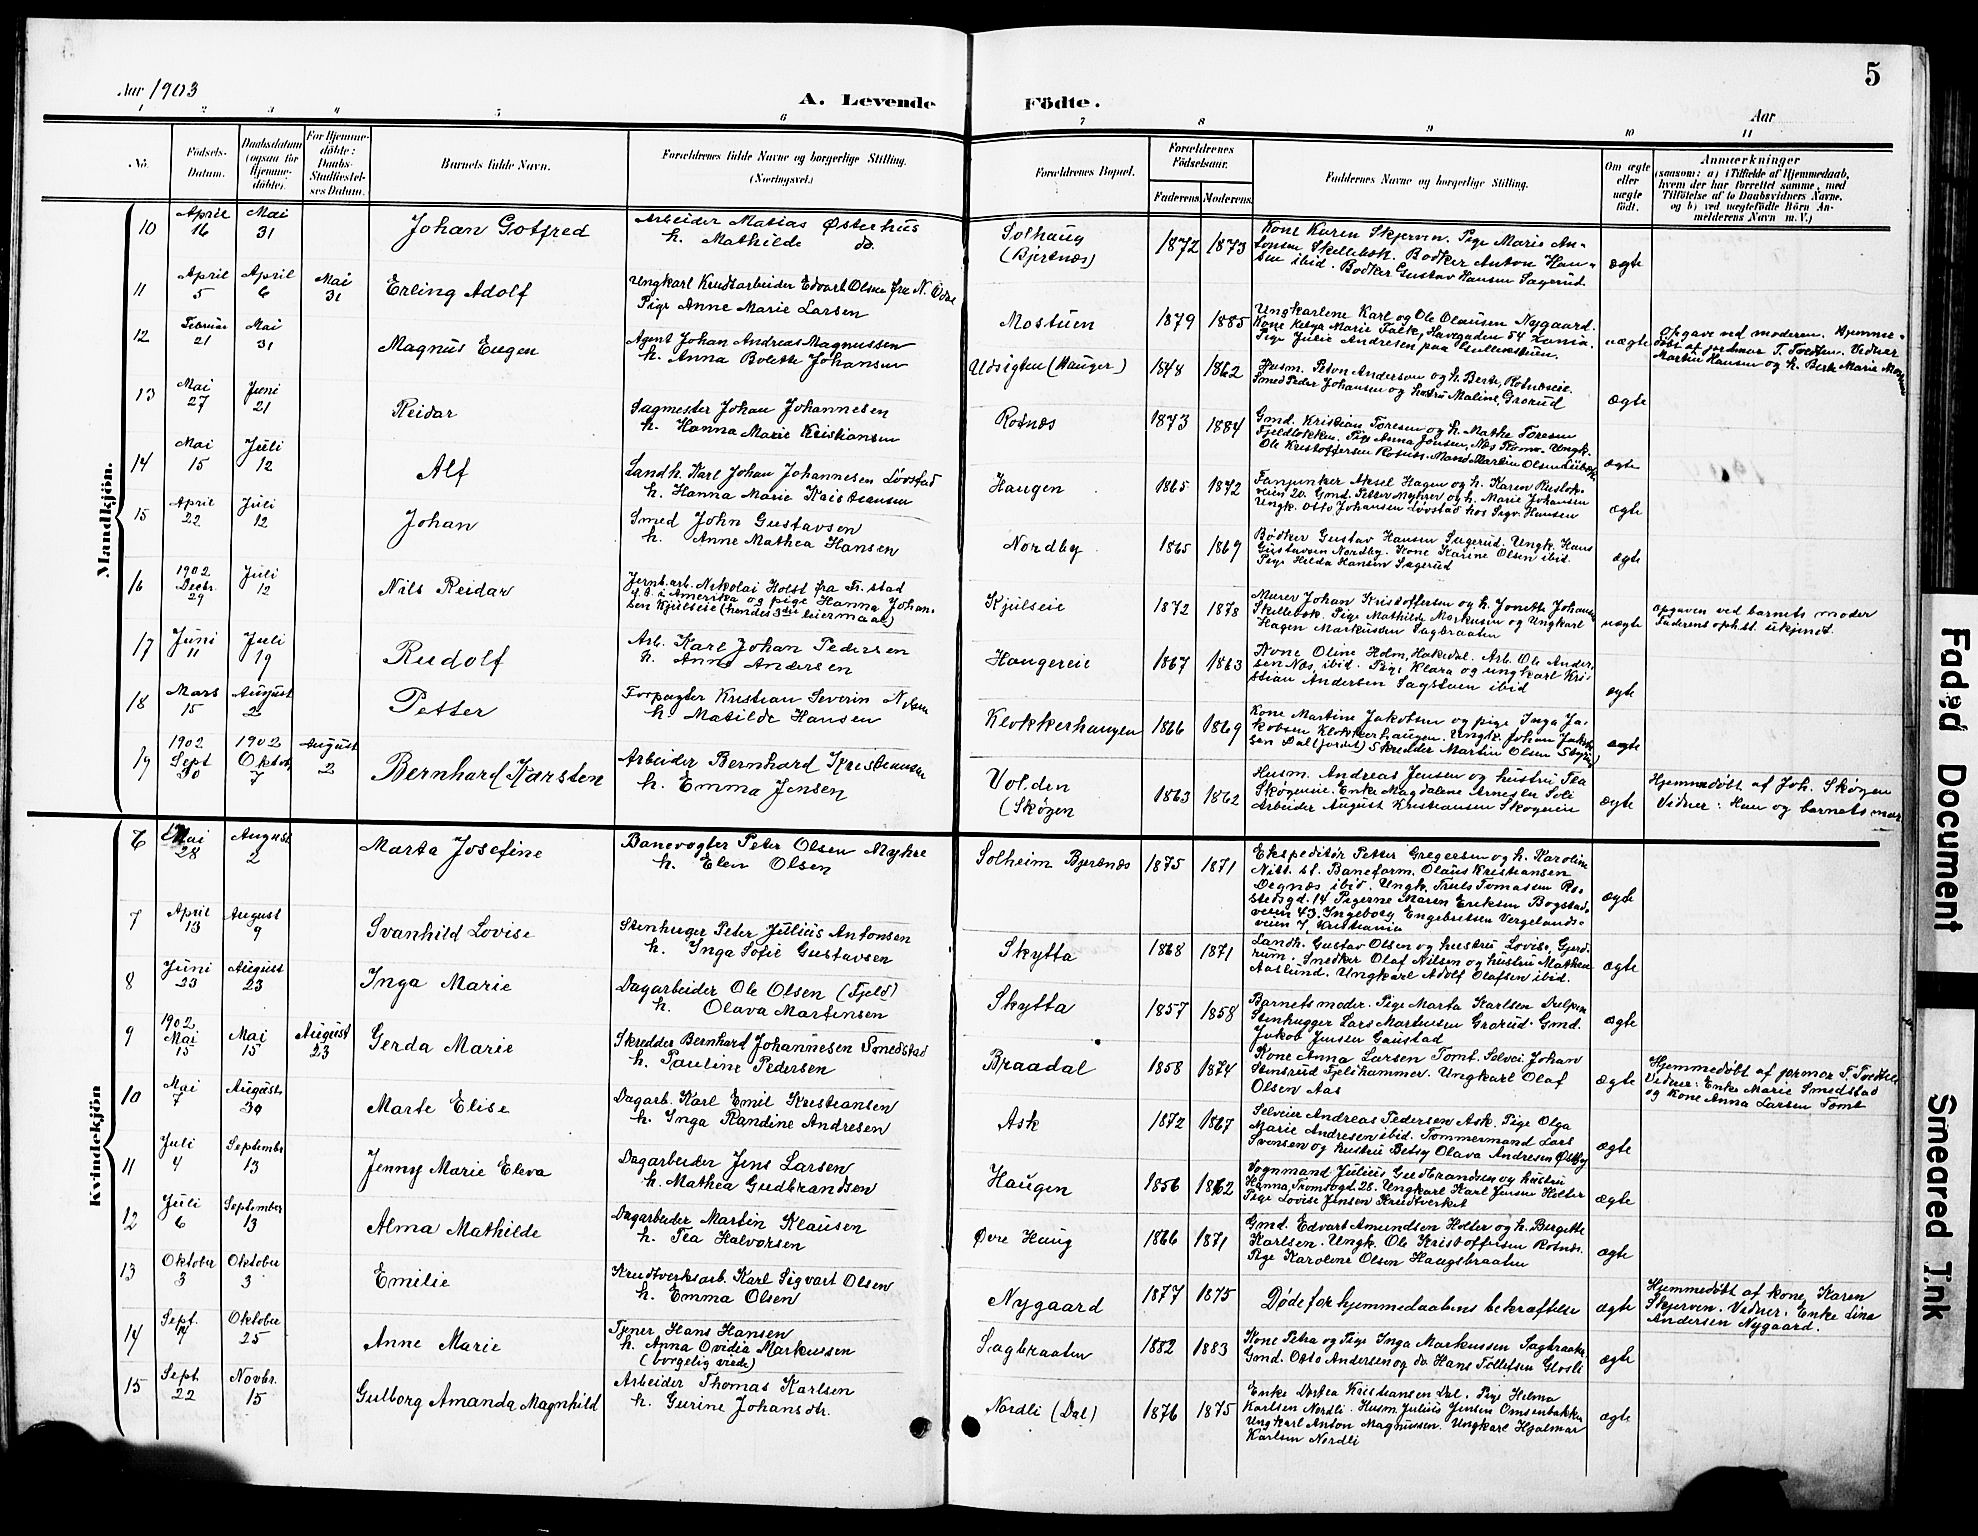 Aar 1903
A. Levende Födte.
5
Aar
1 2 3 4 5 6 7 8 9 10 11
No.
Födsels-Datum.
Daabsdatum (ogsaa for Hjemme-döbte).
For Hjemme-döbte: Daabs-Stadfæstel-ses Datum.
Barnets fulde Navn.
Forældrenes fulde Navne og borgerlige Stilling. (Næringsvei.)
Forældrenes Bopæl.
Forældrenes Födselsaar.
Faderens. Moderens.
Faddernes Navne og borgerlige Stilling.
Om ægte eller uægte födt.
Anmærkninger
(saasom: a) i Tilfælde af Hjemmedaab,
hvem der har forrettet samme, med
Tilföielse af to Daabsvidners Navne,
og b) ved uægtefödte Börn An-
melderens Navn m. V.)
Mandkjön.
10 April 16 Mai 31 Johan Gotfred
Arbeider Matias Østerhus
h. Mathilde do.
Solhaug (Bjertnæs) 1872 1873
Kone Karen Skjerven. Pige Marie An-
tonsen Skillebæk. Bødker Anton Han-
sen ibid. Bødker Gustav Hansen Sagerud.
ægte
11 April 5 April 6 Mai 31 Erling Adolf
Ungkarl Krudtarbeider Edvart Olsen fra N.
Pige Anne Marie Larsen
Mostuen 1879 1885
Ungkarlene Karl og Ole Olausen Nygaard.
Kone Marie Falk, Havegaden 54
Pige Julie Andresen paa
uægte
Opgave ved moderen. Hjemme-
døbt af jordmor T. Tvedten. Vidner
Martin Hansen og h. Berte Marie
12 Februar 21 Mai 31 Magnus Eugen
Agent Johan Andreas Magnussen
h. Anna Bolette Johansen
Udsigten (Hauger) 1848 1862
Husm. Anderson og h. Berte, Rotnæseie.
Smed Peder Johansen og hustru Maline, Grorud
ægte
13 Mai 27 Juni 21 Reidar
Sagmester Johan Johannesen
h. Hanna Marie Kristiansen
Rotnæs 1873 1884
Gmd. Kristian Toresen og h. Mathe Toresen
Fjeldløkken. Pige Anna Jensen, Næs Rome. Ungk.
Ole Kristoffersen Rotnæs. Mand Martin Olsen
ægte
14 Mai 15 Juli 12 Alf
Landh. Karl Johan Johannesen Løvstad
h. Hanna Marie Kristiansen
Haugen 1865 1872
Fanjunker Aksel Hagen og h. Karen
veien 20. Gmd. Petter Myhrer og h. Marie Johansen
Ungk. Otto Johansen Løvstad hos Sigv. Hansen
ægte
15 April 22 Juli 12 Johan
Smed John Gustavsen
h. Anne Mathea Hansen
Nordby 1865 1869
Bødker Gustav Hansen Sagerud. Ungk. Hans
Gustavsen Nordby. Kone Karine Olsen ibid.
Pige Hilda Hansen Sagerud
ægte
16 1902 Decbr. 29 Juli 12 Nils Reidar
Jernb.arb. Nikolai Holst fra Fr.stad
f. t. i Amerika og pige Hanna Johan-
sen Kjulseie (hendes 3die leiermaal)
Kjulseie 1872 1878
Murer Johan Kristoffersen og h. Jonette Johansen
Skillebæk. Pige Mathilde Markusen og Ungkarl
Hagen Markussen Sagbraaten
uægte
Opgaven ved barnets moder
Faderens oph.st. ukjendt.
17 Juni 11 Juli 19 Rudolf
Arb. Karl Johan Pedersen
h. Anne Andersen
Haugereie 1867 1863
Kone Oline Holm, Hakedal. Arb. Ole Ander-
sen Næs, ibid. Pige Klara og ungkarl Kri-
stian Andersen Sagstuen ibid
ægte
18 Mars 15 August 2 Petter
Forpagter Kristian Severin Nilsen
h. Matilde Hansen
Klokkerhaugen 1866 1869
Kone Martine Jakobsen og pige Inga Ja-
kobsen Klokkerhaugen. Ungk. Johan Jakob-
sen Dal (jordet) Skredder Martin Olsen
ægte
19 1902 Sept 30 1902 Oktob. 7 August 2 Bernhard Karsten
Arbeider Bernhard Kristiansen
h. Emma Jensen
Volden (Skøgen 1863 1862
Husm. Andreas Jensen og hustru Tea
Skøgeneie. Enke Magdalene Arnesen Soli
Arbeider August Kristiansen Skøgneie
ægte
Hjemmedøbt af Joh. Skøgen
Vidner: Han og barnets mor
Kvindekjön
6 Mai 28 August 2 Marta Josefine
Banevogter Peter Olsen Myhre
h. Elen Olsen
Solheim Bjertnæs 1875 1871
Ekspeditør Petter Gregersen og h. Karoline
Nitt. st. Baneform. Olaus Kristiansen
Degnæs ibid. Ungk. Truls Tomasen Ro-
stedsgd. 14 Pigerne Maren Eriksen Bogstad-
veien 43, Ingeborg Engebretsen Vergelands-
veien 7, Kristiania
ægte
7 April 13 August 9 Svanhild Lovise
Stenhuger Peter Julius Antonsen
h. Inga Sofie Gustavsen
Skytta 1868 1871
Landh. Gustav Olsen og hustru Lovise, Gjerd-
rum. Snedker Olaf Nilsen og hustru Mathea
Aaslund. Ungkarl Adolf Olafsen ibid.
ægte
8 Juni 23 August 23 Inga Marie
Dagarbeider Ole Olsen (Fjeld)
h. Olava Martinsen
Skytta 1857 1858
Barnets moder. Pige Marta Karlsen
Stenhugger Lars Martinsen Grorud. Gmd.
Jakob Jensen Gaustad
ægte
9 1902 Mai 15 Mai 15 August 23 Gerda Marie
Skredder Bernhard Johannesen Smedstad
h. Pauline Pedersen
Braadal 1858 1874
Kone Anna Larsen Tomt. Selvei. Johan
Stensrud Fjellhammer. Ungkarl Olaf
Olsen Aas
ægte
Hjemmedøbt af jormor T. Tvedten
Vidner: Enke Marie Smedstad
og Kone Anna Larsen Tomt
10 Mai 7 August 30 Marte Elise
Dagarb. Karl Emil Kristiansen
h. Inga Randine Andresen
Ask 1872 1867
Selveier Andreas Pedersen Ask. Pige Olga
Marie Andresen ibid. Tømmermand Lars
Svensen og hustru Betsy Olava Andresen Østby
ægte
11 Juli 4 September 13 Jenny Marie Eleva
Dagarbeider Jens Larsen
h. Mathea Gudbrandsen
Haugen 1856 1862
Vognmand Julius Gudbrandsen og hustru
Hanna, Tromsøgd. 28. Ungkarl Karl Jensen Holter
Pige Lovise Jensen Krudtverket
ægte
12 Juli 6 September 13 Alma Mathilde
Dagarbeider Martin Klausen
h. Tea Halvorsen
Øvre Haug 1866 1871
Gmd. Edvart Amundsen Holter og h. Bergitte
Karlsen. Ungk. Ole Kristoffersen Rotnæs.
Pige Karoline Olsen Haugsbraaten
ægte
13 Oktober 3 Oktober 3 Emilie
Krudtverksarb. Karl Sigvart Olsen
h. Emma Olsen
Nygaard 1877 1875
Døde før hjemmedaabens bekræftelse
ægte
Hjemmedøbt af kone Karen
Skjerven. Vidner: Enke Lina
Andersen Nygaard.
14 Sept. 7 Oktober 25 Anne Marie
Tjener Hans Hansen
h. Anna Ovidia Markussen
(borgelig viede)
Sagbraaten 1882 1883
Kone Petra og Pige Inga Markussen Sagbraaten
Gmd. Otto Andersen og do Hans Tollefsen Glosli
ægte
15 Sept 22 Novbr. 15 Gulborg Amanda Magnhild
Arbeider Thomas Karlsen
h. Gurine Johansdtr.
Nordli (Dal) 1876 1875
Enke Dortea Kristiansen Dal. Pige Helma
Karlsen Nordli. Husm. Julius Jensen Omsenbakken
Ungkarl Anton Magnussen. Ungkarl Hjalmar
Karlsen Nordli
ægte
Faded Document
Smeared Ink